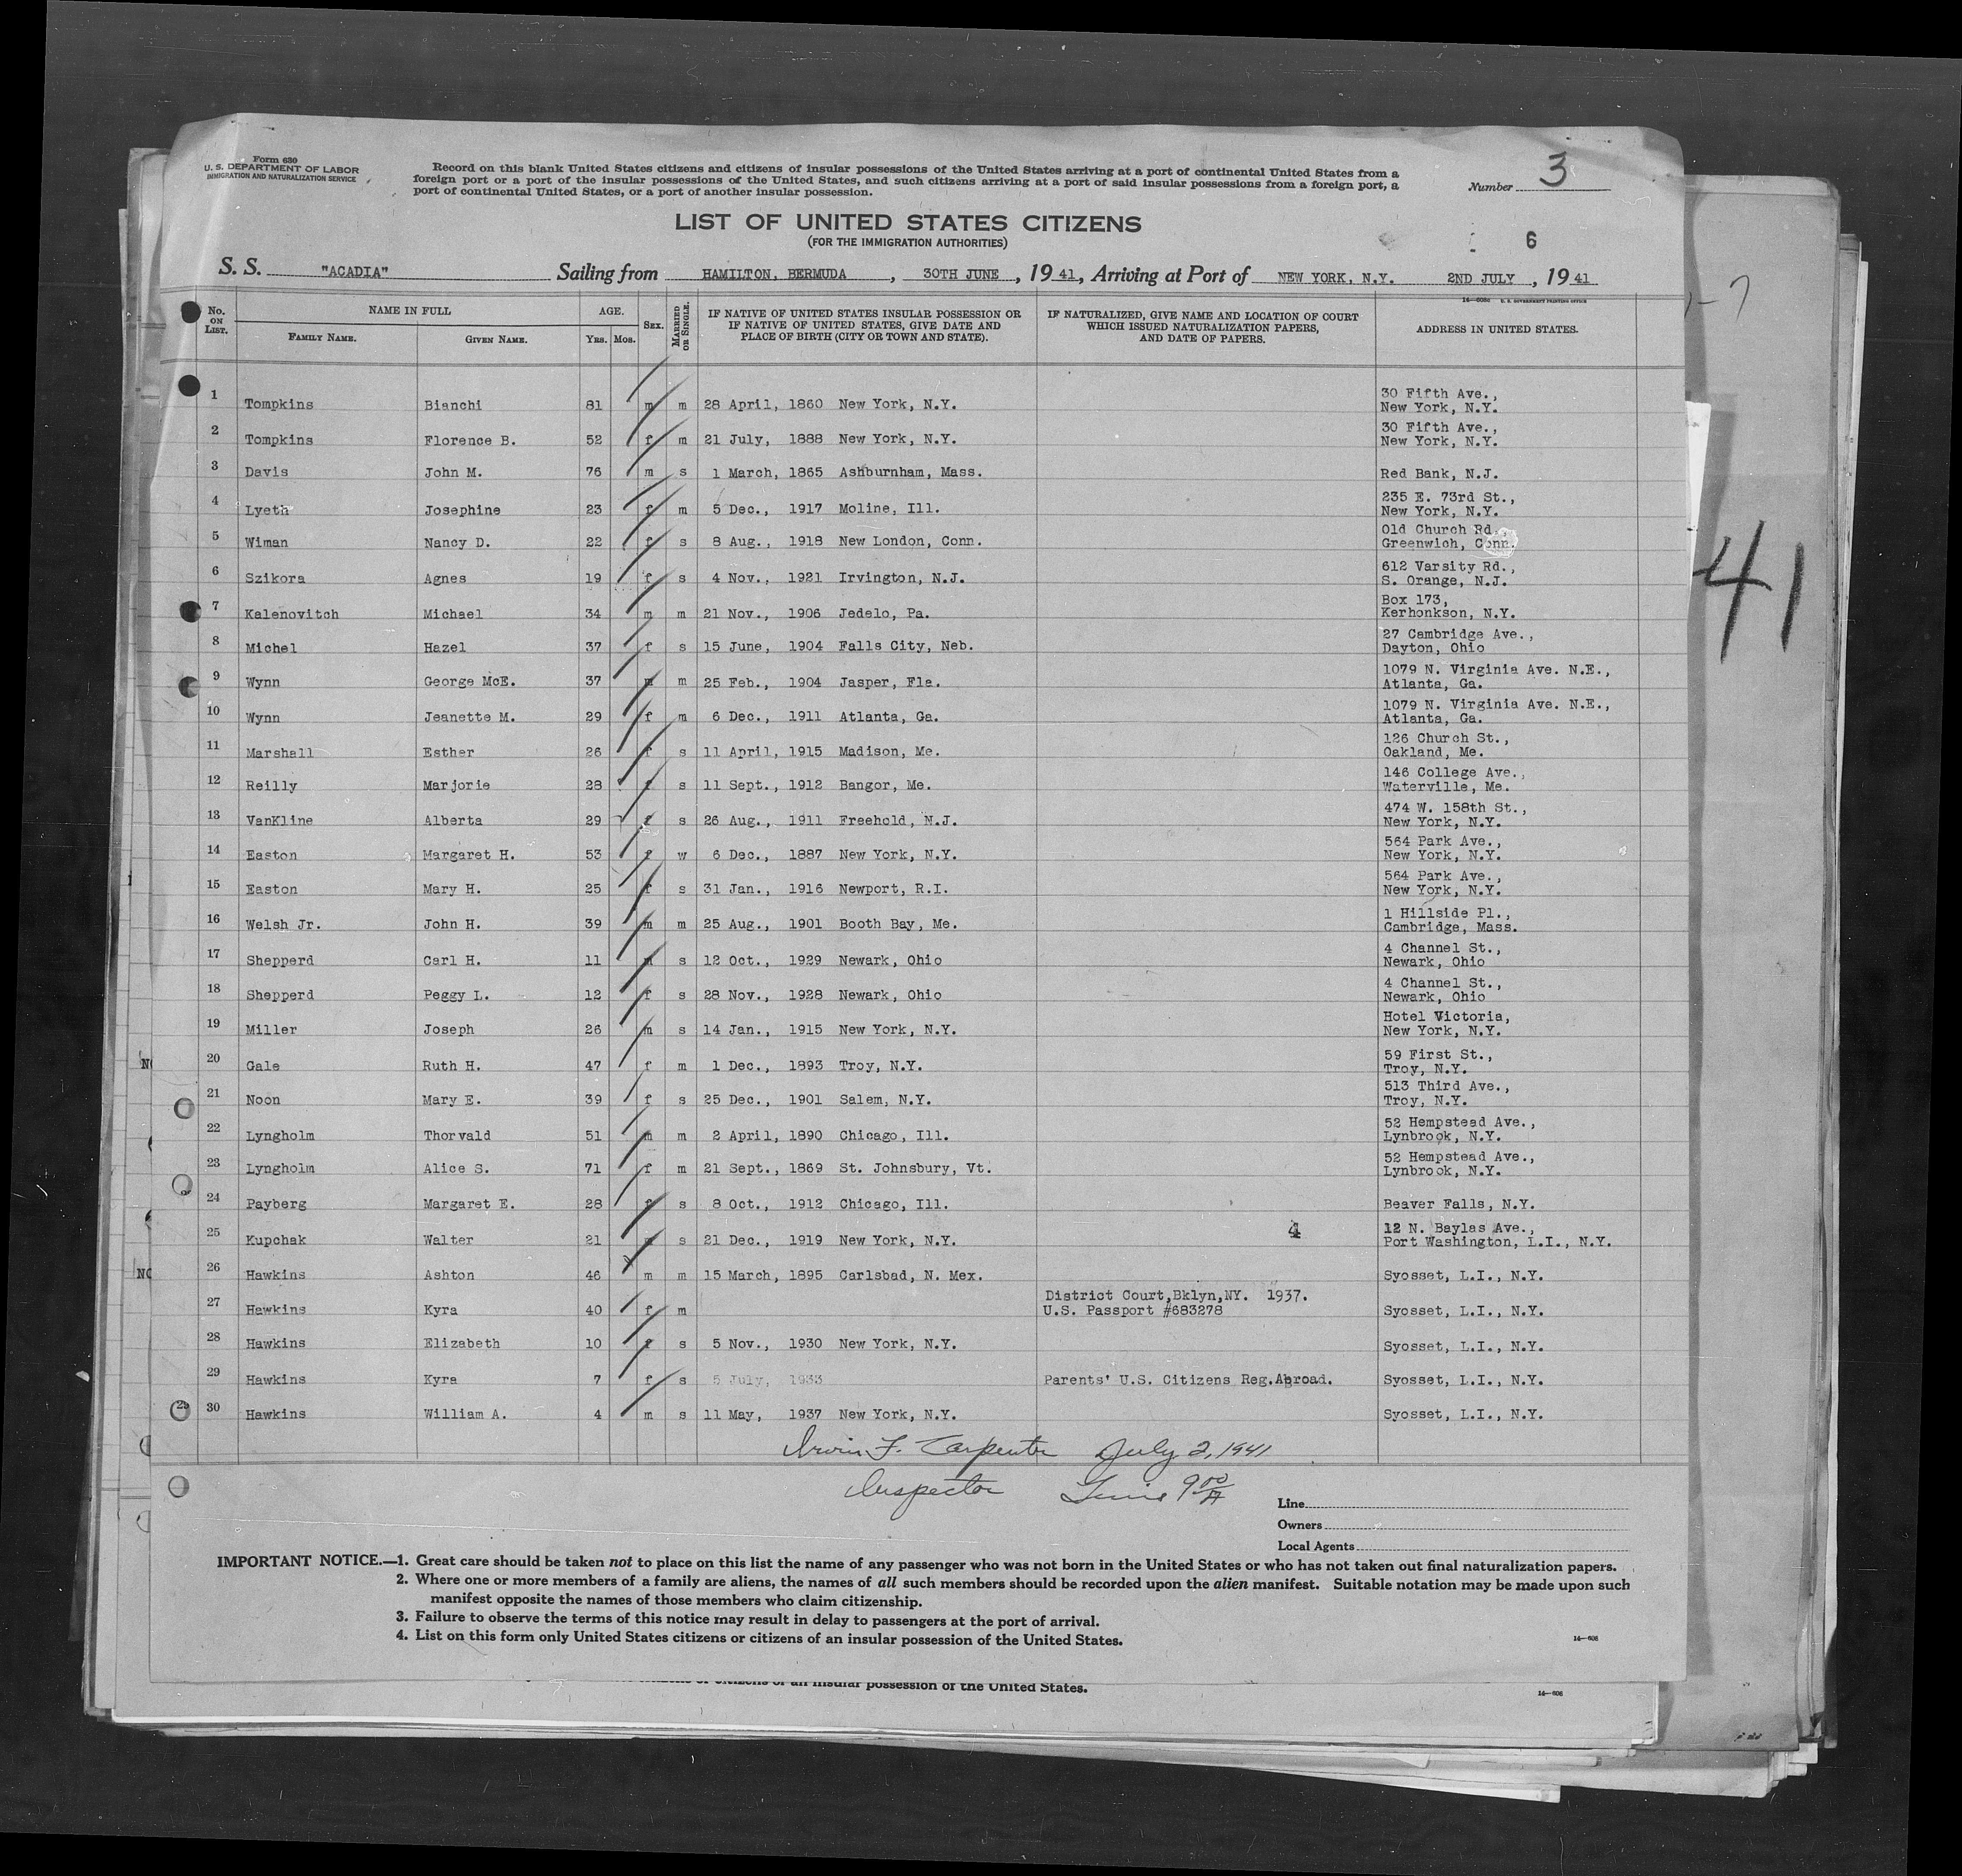 Form 630
U. S. DEPARTMENT OF LABOR
IMMIGRATION AND NATURALIZATION SERVICE
Record on this blank United States citizens and citizens of insular possessions of the United States arriving at a port of continental United States from a
foreign port or a port of the insular possessions of the United States, and such citizens arriving at a port of said insular possessions from a foreign port, a
port of continental United States, or a port of another insular possession.
Number 3
LIST OF UNITED STATES CITIZENS
(FOR THE IMMIGRATION AUTHORITIES)
6
S. S. "ACADIA" Sailing from HAMILTON, BERMUDA, 30TH JUNE, 19 41, Arriving at Port of NEW YORK, N.Y. 2ND JULY, 19 41
No. ON LIST. NAME IN FULL FAMILY NAME. GIVEN NAME. AGE. YRS. MOS. SEX. MARRIED OR SINGLE. IF NATIVE OF UNITED STATES INSULAR POSSESSION OR IF NATIVE OF UNITED STATES, GIVE DATE AND PLACE OF BIRTH (CITY OR TOWN AND STATE). IF NATURALIZED, GIVE NAME AND LOCATION OF COURT WHICH ISSUED NATURALIZATION PAPERS, AND DATE OF PAPERS. ADDRESS IN UNITED STATES.
1 Tompkins Bianchi 81 m m 28 April, 1860 New York, N.Y. 30 Fifth Ave., New York, N.Y.
2 Tompkins Florence B. 52 f m 21 July, 1888 New York, N.Y. 30 Fifth Ave., New York, N.Y.
3 Davis John M. 76 m s 1 March, 1865 Ashburnham, Mass. Red Bank, N.J.
4 Lyeth Josephine 23 f m 5 Dec., 1917 Moline, Ill. 235 E. 73rd St., New York, N.Y.
5 Wiman Nancy D. 22 f s 8 Aug., 1918 New London, Conn. Old Church Rd., Greenwich, Conn.
6 Szikora Agnes 19 f s 4 Nov., 1921 Irvington, N.J. 612 Varsity Rd., S. Orange, N.J.
7 Kalenovitch Michael 34 m m 21 Nov., 1906 Jedelo, Pa. Box 173, Kerhonkson, N.Y.
8 Michel Hazel 37 f s 15 June, 1904 Falls City, Neb. 27 Cambridge Ave., Dayton, Ohio
9 Wynn George McE. 37 m m 25 Feb., 1904 Jasper, Fla. 1079 N. Virginia Ave. N.E., Atlanta, Ga.
10 Wynn Jeanette M. 29 f m 6 Dec., 1911 Atlanta, Ga. 1079 N. Virginia Ave. N.E., Atlanta, Ga.
11 Marshall Esther 26 f s 11 April, 1915 Madison, Me. 126 Church St., Oakland, Me.
12 Reilly Marjorie 28 f s 11 Sept., 1912 Bangor, Me. 146 College Ave., Waterville, Me.
13 VanKline Alberta 29 f s 26 Aug., 1911 Freehold, N.J. 474 W. 158th St., New York, N.Y.
14 Easton Margaret H. 53 f w 6 Dec., 1887 New York, N.Y. 564 Park Ave., New York, N.Y.
15 Easton Mary H. 25 f s 31 Jan., 1916 Newport, R.I. 564 Park Ave., New York, N.Y.
16 Welsh Jr. John H. 39 m m 25 Aug., 1901 Booth Bay, Me. 1 Hillside Pl., Cambridge, Mass.
17 Shepperd Carl H. 11 m s 12 Oct., 1929 Newark, Ohio 4 Channel St., Newark, Ohio
18 Shepperd Peggy L. 12 f s 28 Nov., 1928 Newark, Ohio 4 Channel St., Newark, Ohio
19 Miller Joseph 26 m s 14 Jan., 1915 New York, N.Y. Hotel Victoria, New York, N.Y.
20 Gale Ruth H. 47 f m 1 Dec., 1893 Troy, N.Y. 59 First St., Troy, N.Y.
21 Noon Mary E. 39 f s 25 Dec., 1901 Salem, N.Y. 513 Third Ave., Troy, N.Y.
22 Lyngholm Thorvald 51 m m 2 April, 1890 Chicago, Ill. 52 Hempstead Ave., Lynbrook, N.Y.
23 Lyngholm Alice S. 71 f m 21 Sept., 1869 St. Johnsbury, Vt. 52 Hempstead Ave., Lynbrook, N.Y.
24 Payberg Margaret E. 28 f s 8 Oct., 1912 Chicago, Ill. Beaver Falls, N.Y.
25 Kupchak Walter 21 m s 21 Dec., 1919 New York, N.Y. 4 12 N. Baylas Ave., Port Washington, L.I., N.Y.
26 Hawkins Ashton 46 m m 15 March, 1895 Carlsbad, N. Mex. Syosset, L.I., N.Y.
27 Hawkins Kyra 40 f m District Court,Bklyn,NY. 1937. U.S. Passport #683278 Syosset, L.I., N.Y.
28 Hawkins Elizabeth 10 f s 5 Nov., 1930 New York, N.Y. Syosset, L.I., N.Y.
29 Hawkins Kyra 7 f s 5 July, 1933 Parents' U.S. Citizens Reg.Abroad. Syosset, L.I., N.Y.
30 Hawkins William A. 4 m s 11 May, 1937 New York, N.Y. Syosset, L.I., N.Y.
Irvin F. Carpenter July 2, 1941
Inspector Time 9 00 A
Line
Owners
Local Agents
IMPORTANT NOTICE.—1. Great care should be taken not to place on this list the name of any passenger who was not born in the United States or who has not taken out final naturalization papers.
2. Where one or more members of a family are aliens, the names of all such members should be recorded upon the alien manifest. Suitable notation may be made upon such
manifest opposite the names of those members who claim citizenship.
3. Failure to observe the terms of this notice may result in delay to passengers at the port of arrival.
4. List on this form only United States citizens or citizens of an insular possession of the United States.
14—606
possession of the United States.
14—606
41